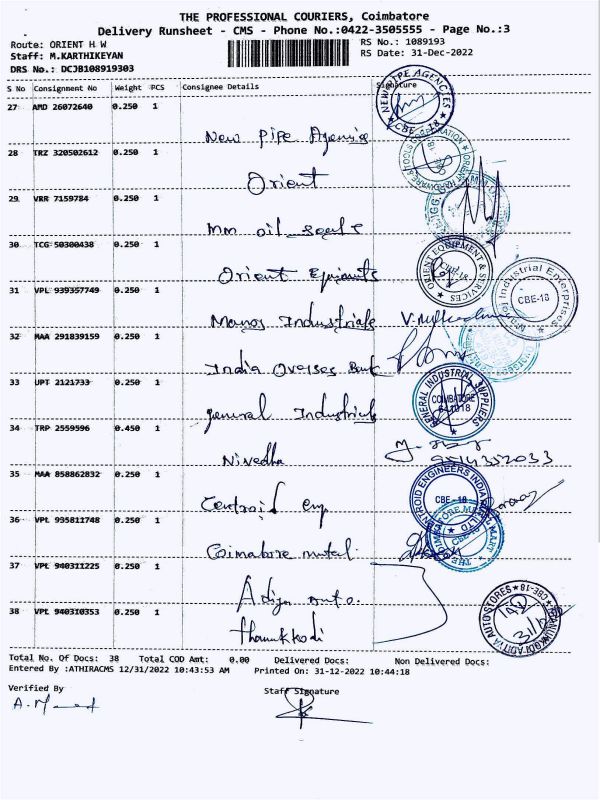 THE PROFESSIONAL COURIERS, Coimbatore
Delivery Runsheet - CMS - Phone No.:0422-3505555 - Page No.:3
Route: ORIENT H W
RS No.: 1089193
Staff: M.KARTHIKEYAN
RS Date: 31-Dec-2022
DRS No.: DCJB108919303
S No Consignment No Weight PCS Consignee Details Signature
27 AMD 26072640 0.250 1
New Pipe Agencies
NEW PIPE AGENCIES
CBE - 18
28 TRZ 320502612 0.250 1
Orient
29 VRR 7159784 0.250 1
mm oil seals
30 TCG 50300438 0.250 1
Orient
ORIENT EQUIPMENT & SERVICES
31 VPL 939357749 0.250 1
Manoj Industrials
Manoj Industrial Enterprises
CBE-18
32 MAA 291839159 0.250 1
India Overses Bank
33 UPT 2121733 0.250 1
general Industrials
GENERAL INDUSTRIAL SUPPLIERS
COIMBATORE
641018
34 TRP 2559596 0.450 1
Nivedha
35 MAA 858862832 0.250 1
Centroid Eng
CENTROID ENGINEERS INDIA
CBE - 18
36 VPL 935811748 0.250 1
Coimatore metal
37 VPL 940311225 0.250 1
Aditya Auto.
38 VPL 940310353 0.250 1
thanukkodi
ADITYA AUTO STORES
CBE-18
Total No. Of Docs: 38 Total COD Amt: 0.00 Delivered Docs: Non Delivered Docs:
Entered By :ATHIRACMS 12/31/2022 10:43:53 AM Printed On: 31-12-2022 10:44:18
Verified By Staff Signature